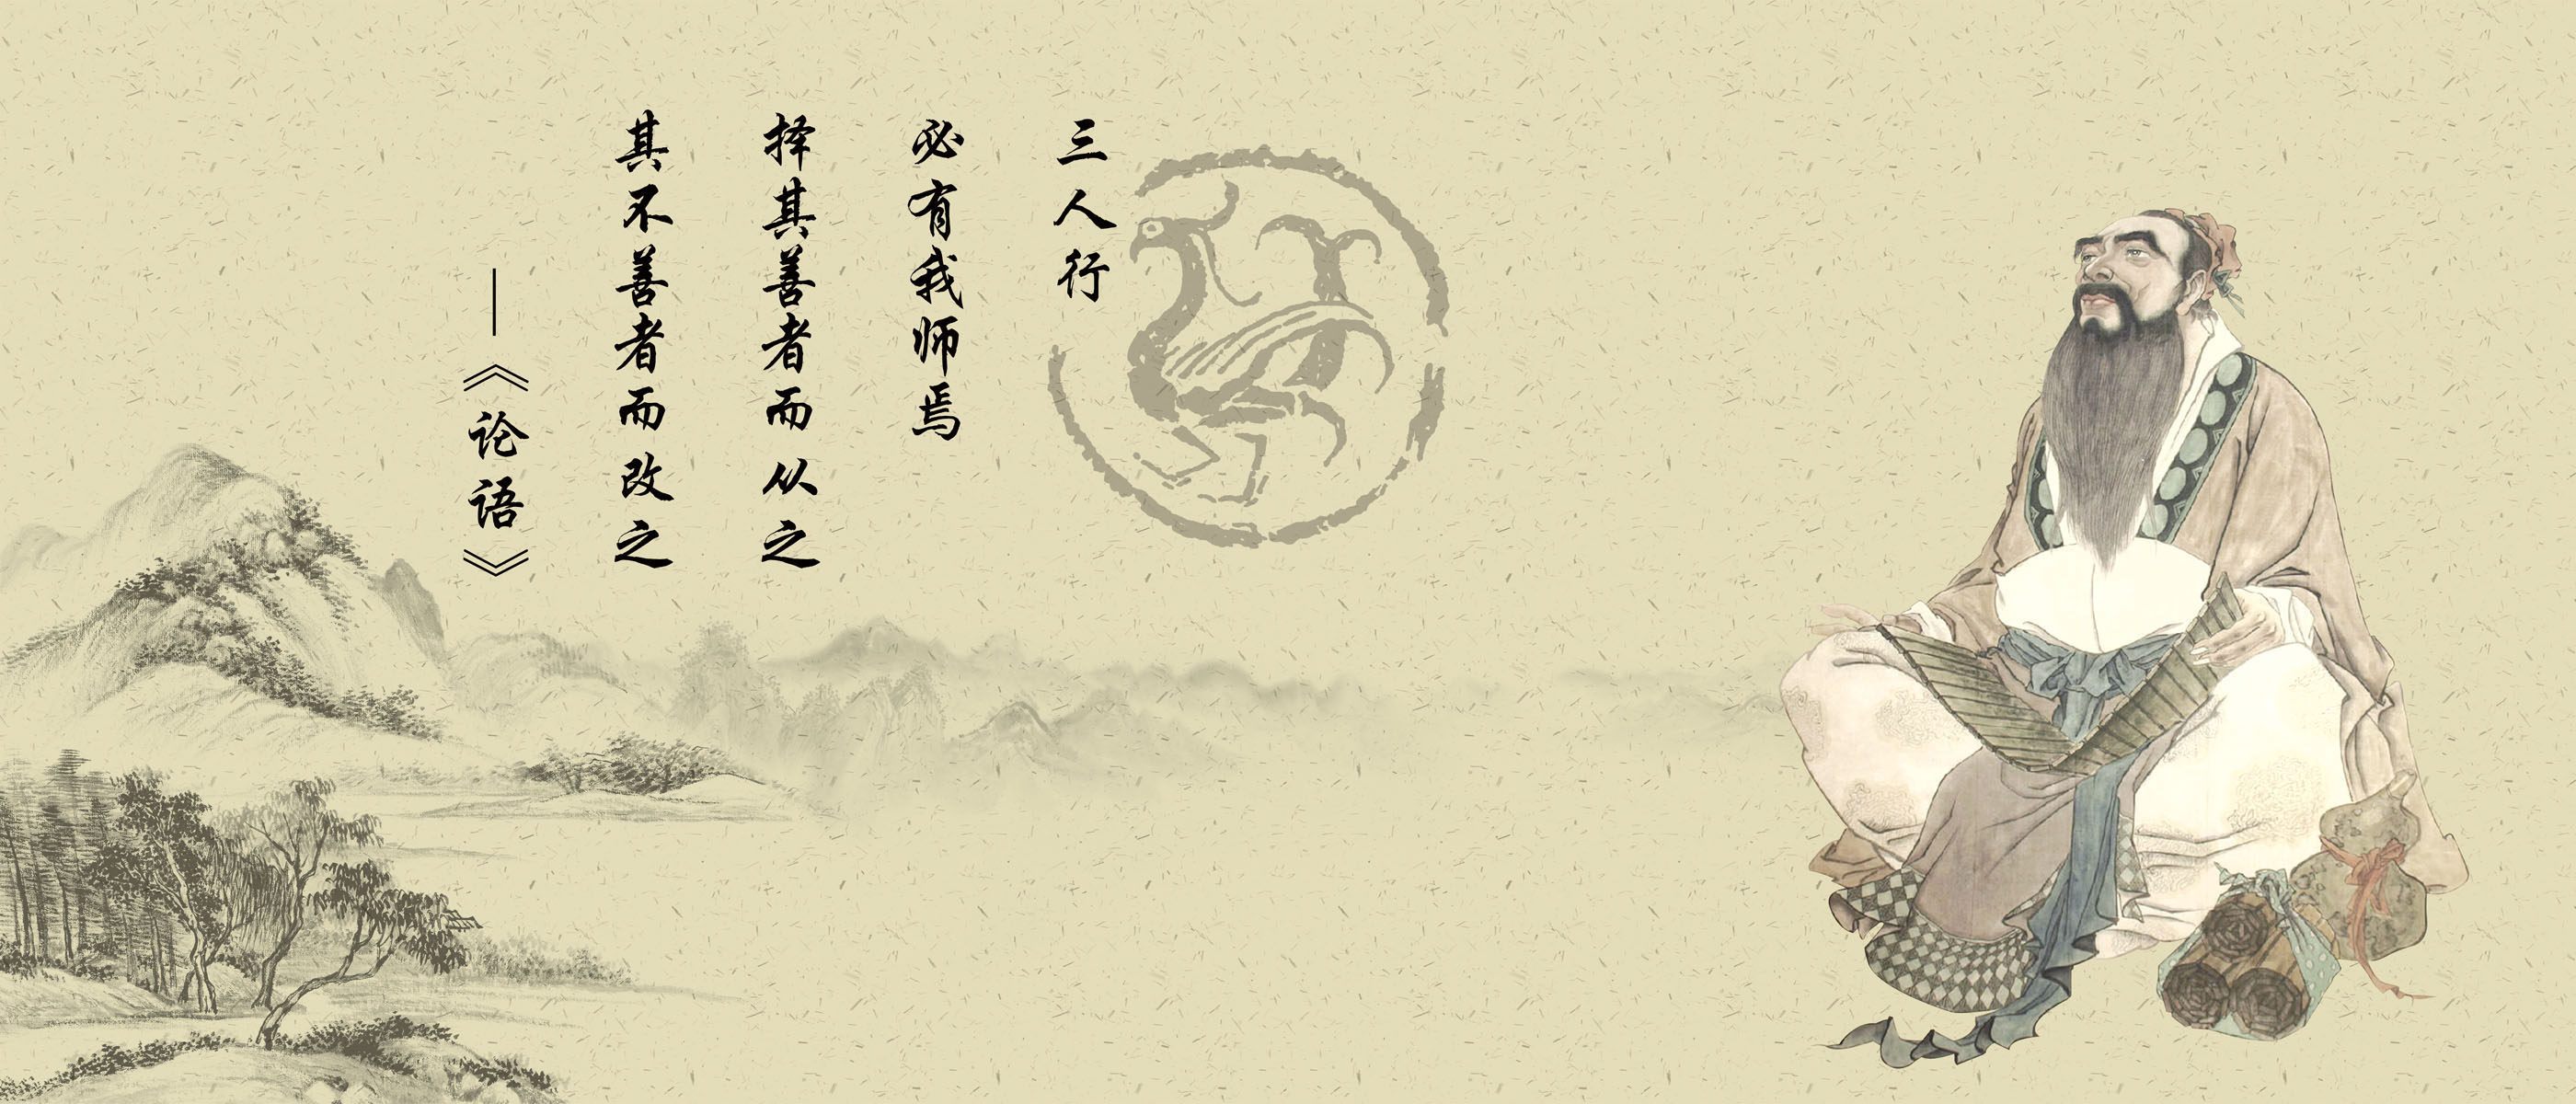 三人行
必有我师焉
择其善者而从之
其不善者而改之
—《论语》